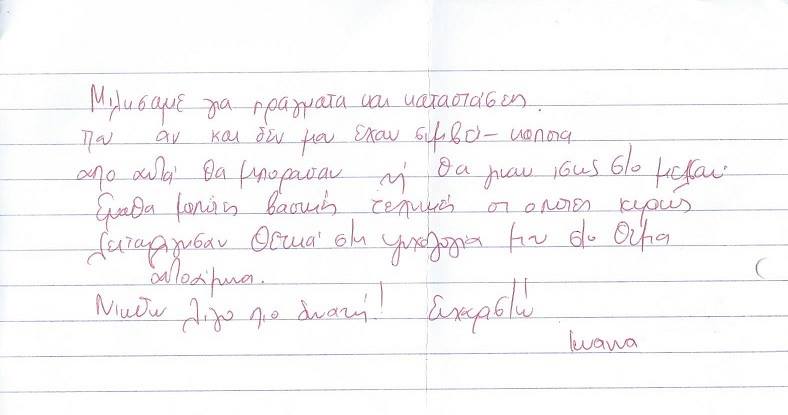 Μιλησαμε για πραγματα και καταστάσεις.
που αν και δεν μου εχουν συμβει - καποια
απο αυτά θα μπορουσαν ή θα γινουν ισως στο μελλον.
Εμαθα βασικές τεχνικές οι οποιες κυρίως
θετικά στη ψυχολογια μου στο θεμα
αυτοάμυνα.
Νιωθω λιγο πιο δυνατή! Ευχαριστώ
Ιωαννα